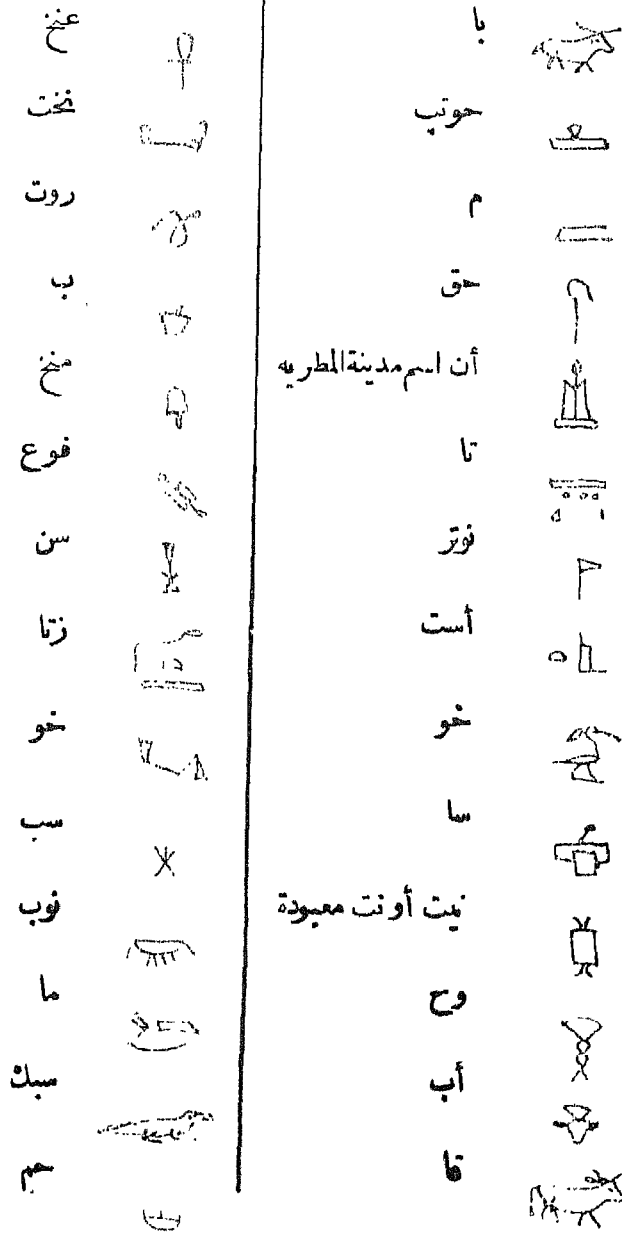 با
حوتب
م
حق
أن اسم مدينة المطريه
تا
نوتر
أست
خو
سا
نيت أو نت معبودة
وح
أب
قا
عنخ
نخت
روت
ب
منخ
فوع
سن
زتا
خو
سب
نوب
ما
سبك
حم